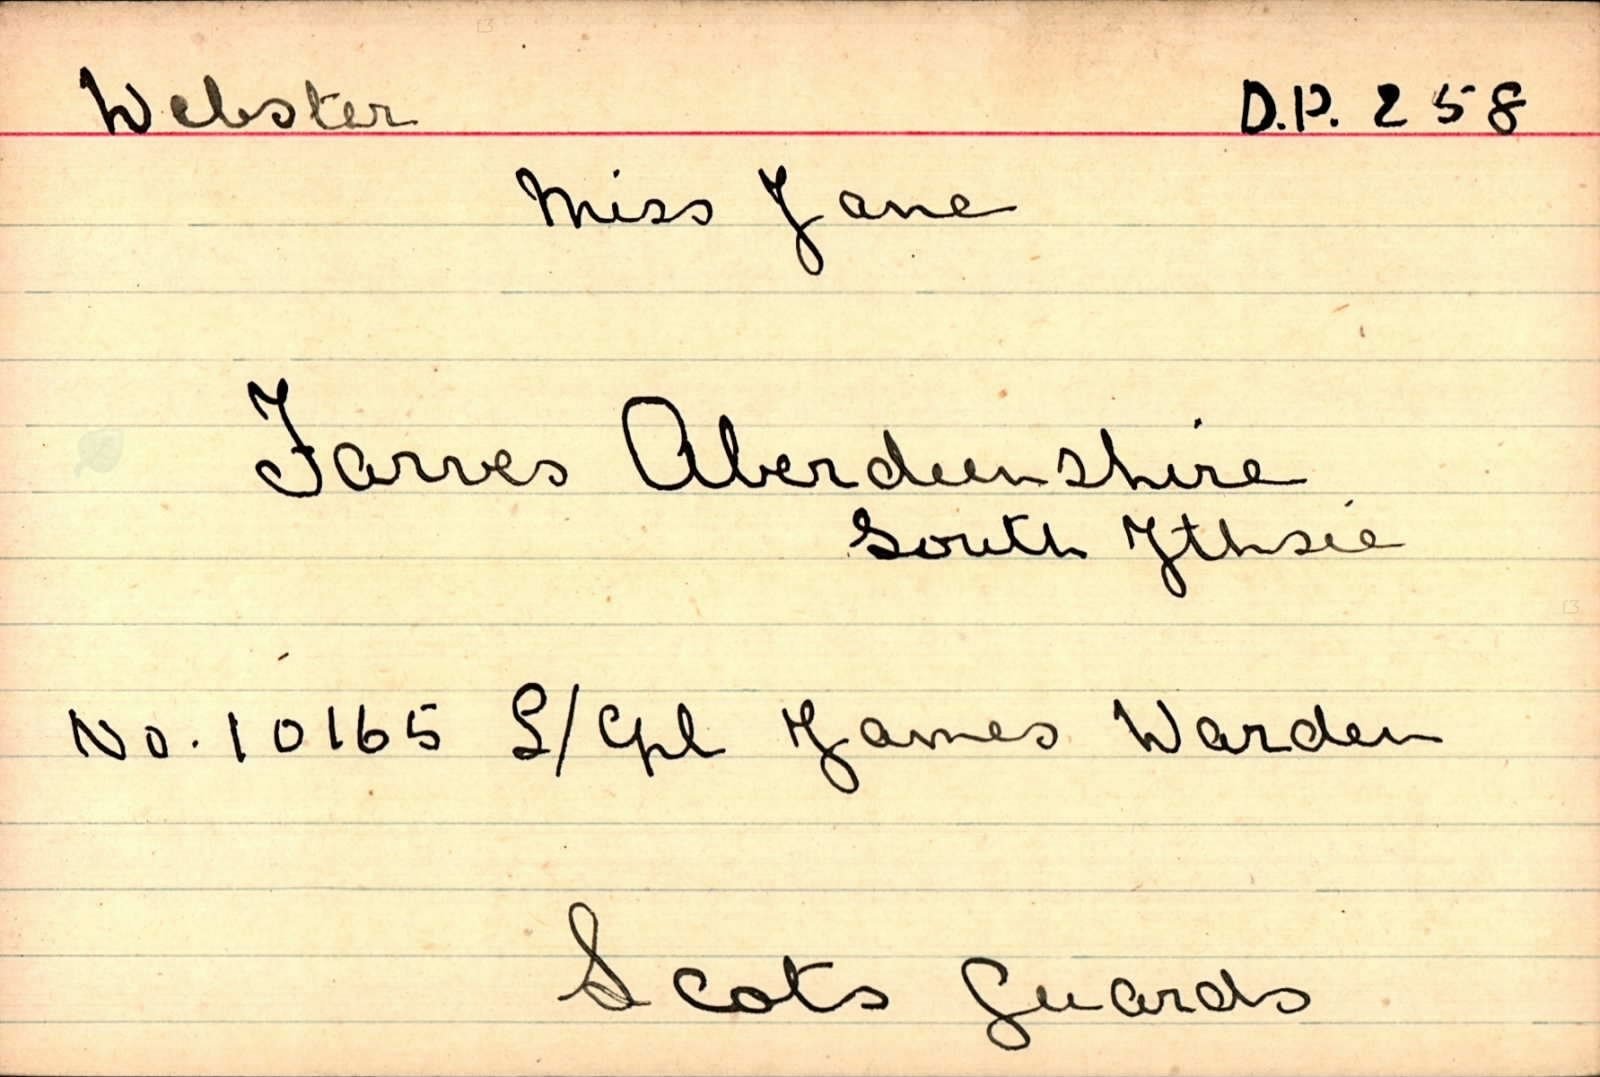 Webster D.P. 258
Miss Jane
Tarves Aberdeenshire
South Ythsie
No. 10165 L/Cpl James Warden
Scots Guards